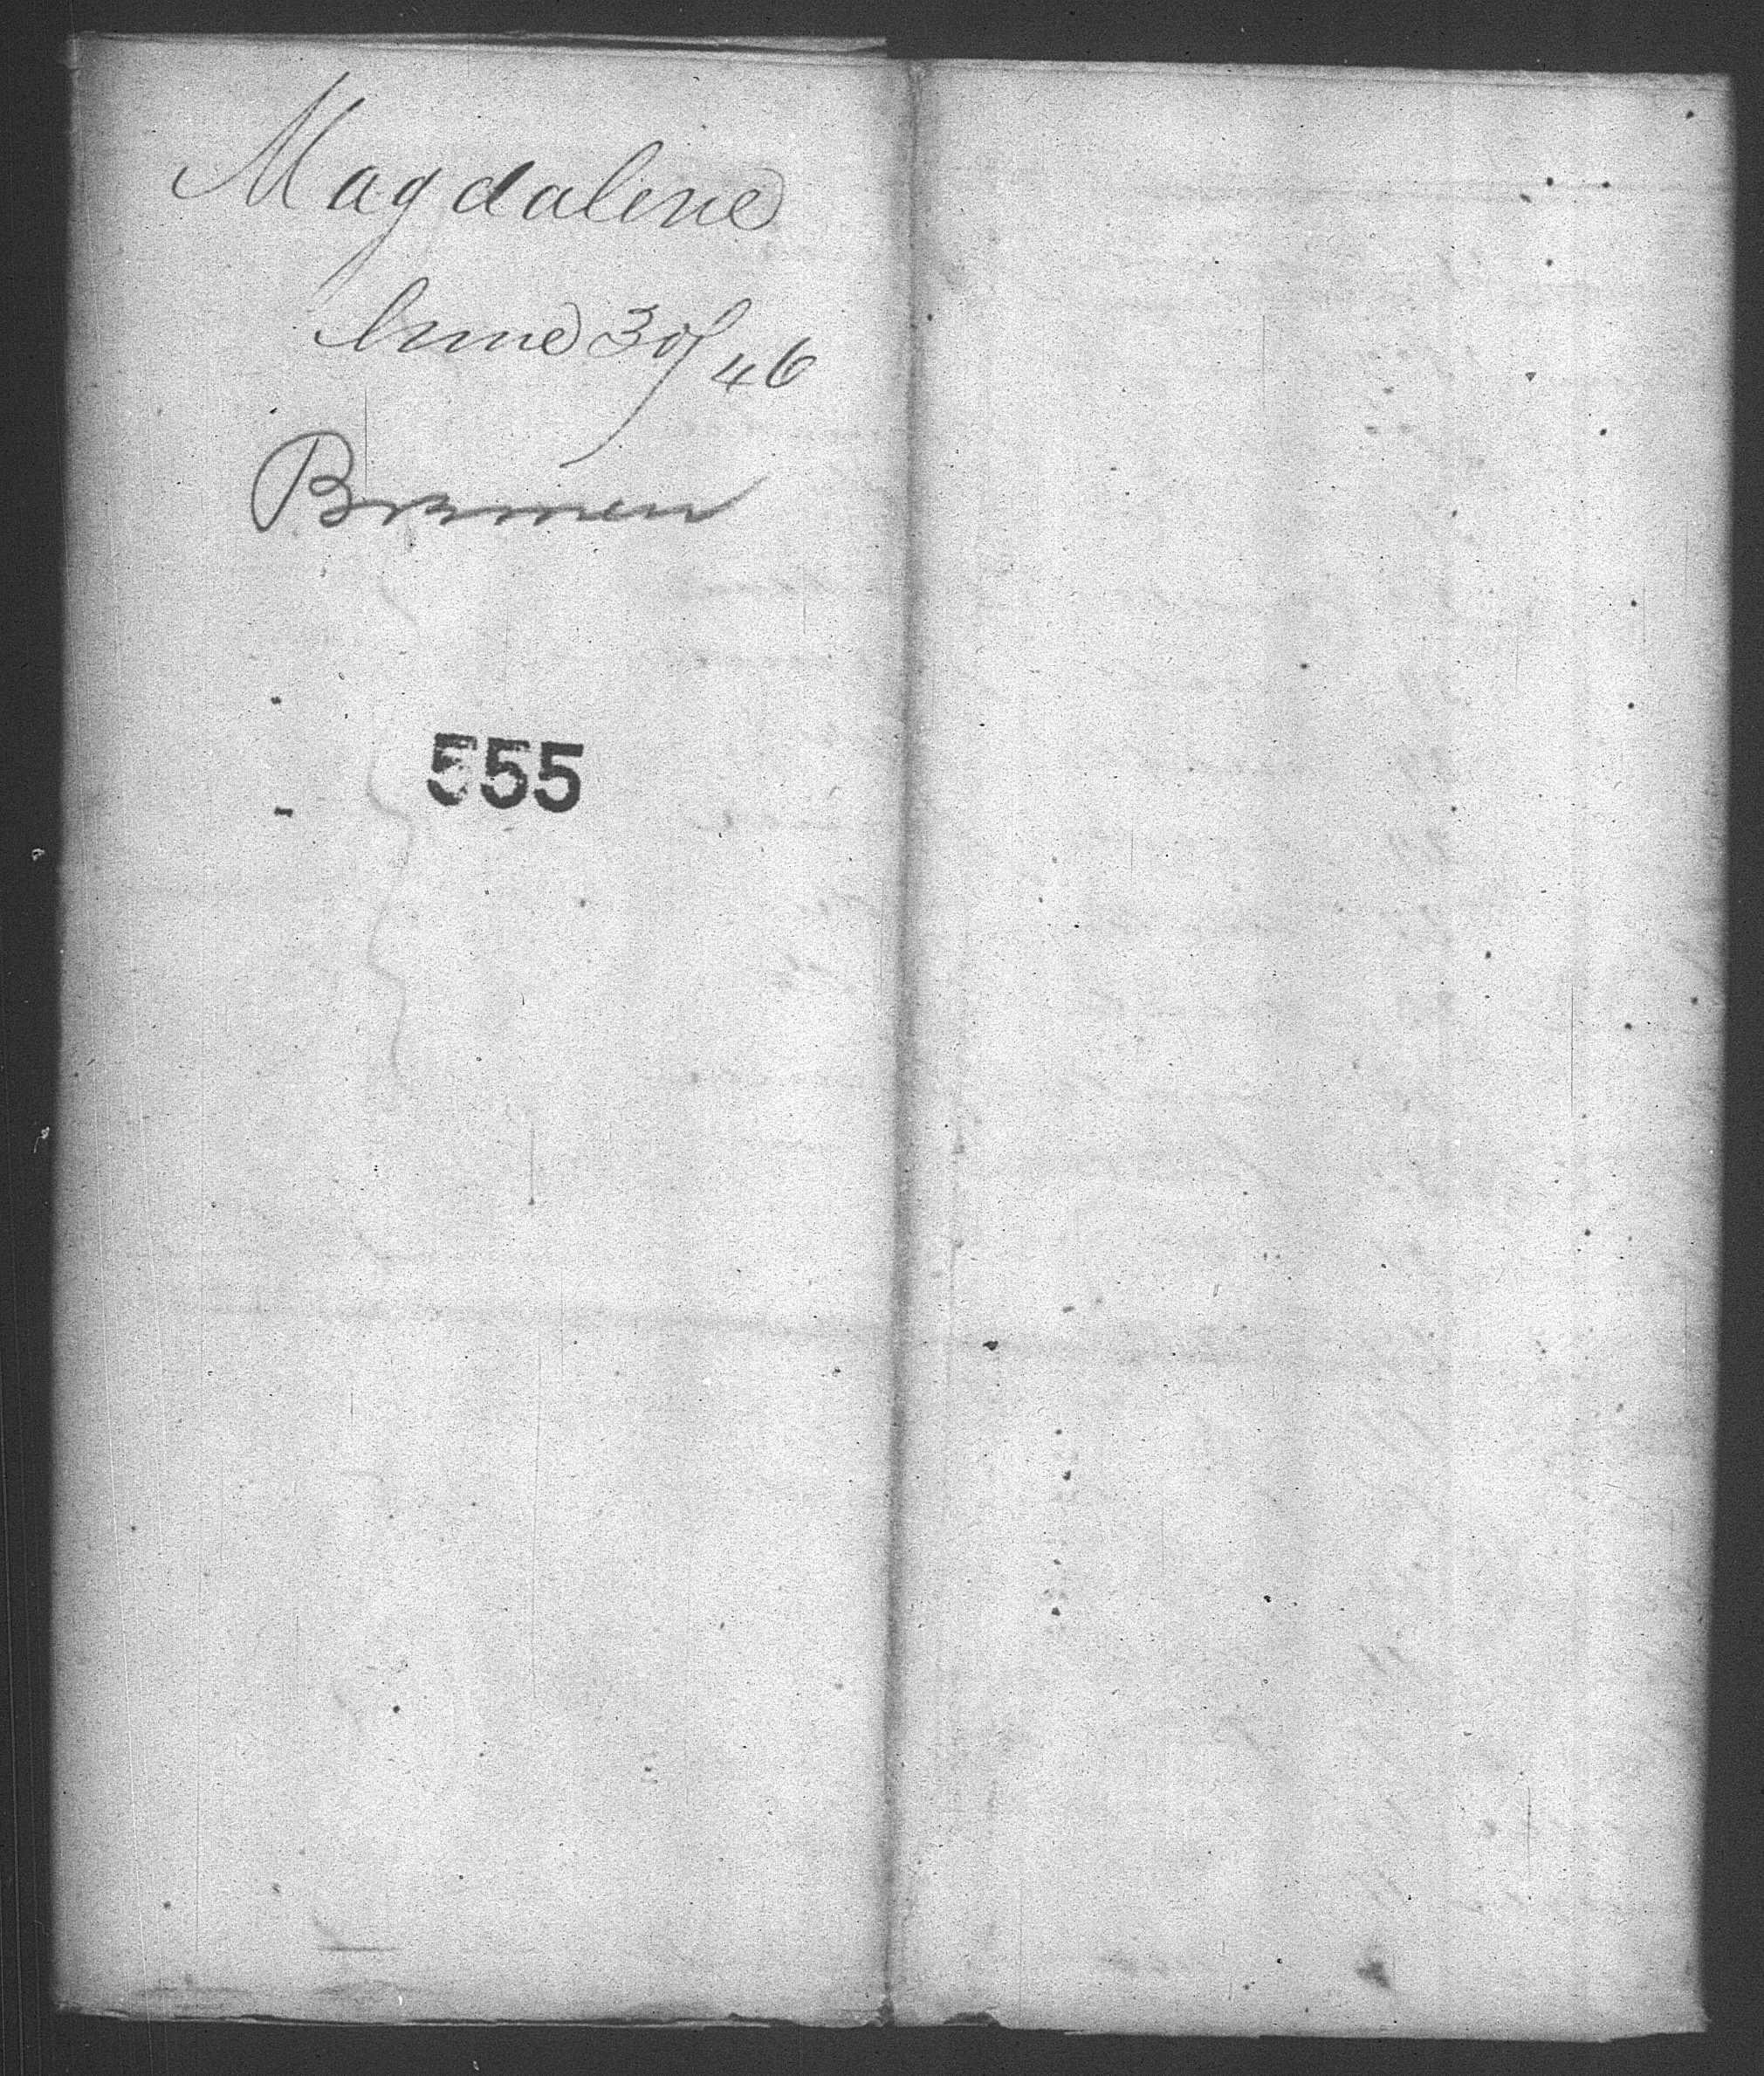 Magdalene
June 30/46
Bremen
555